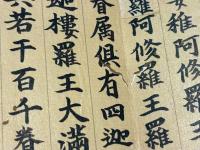 稚阿修羅
羅阿修羅王羅
眷属俱有四迦
迦樓羅王大滿
若干百千眷